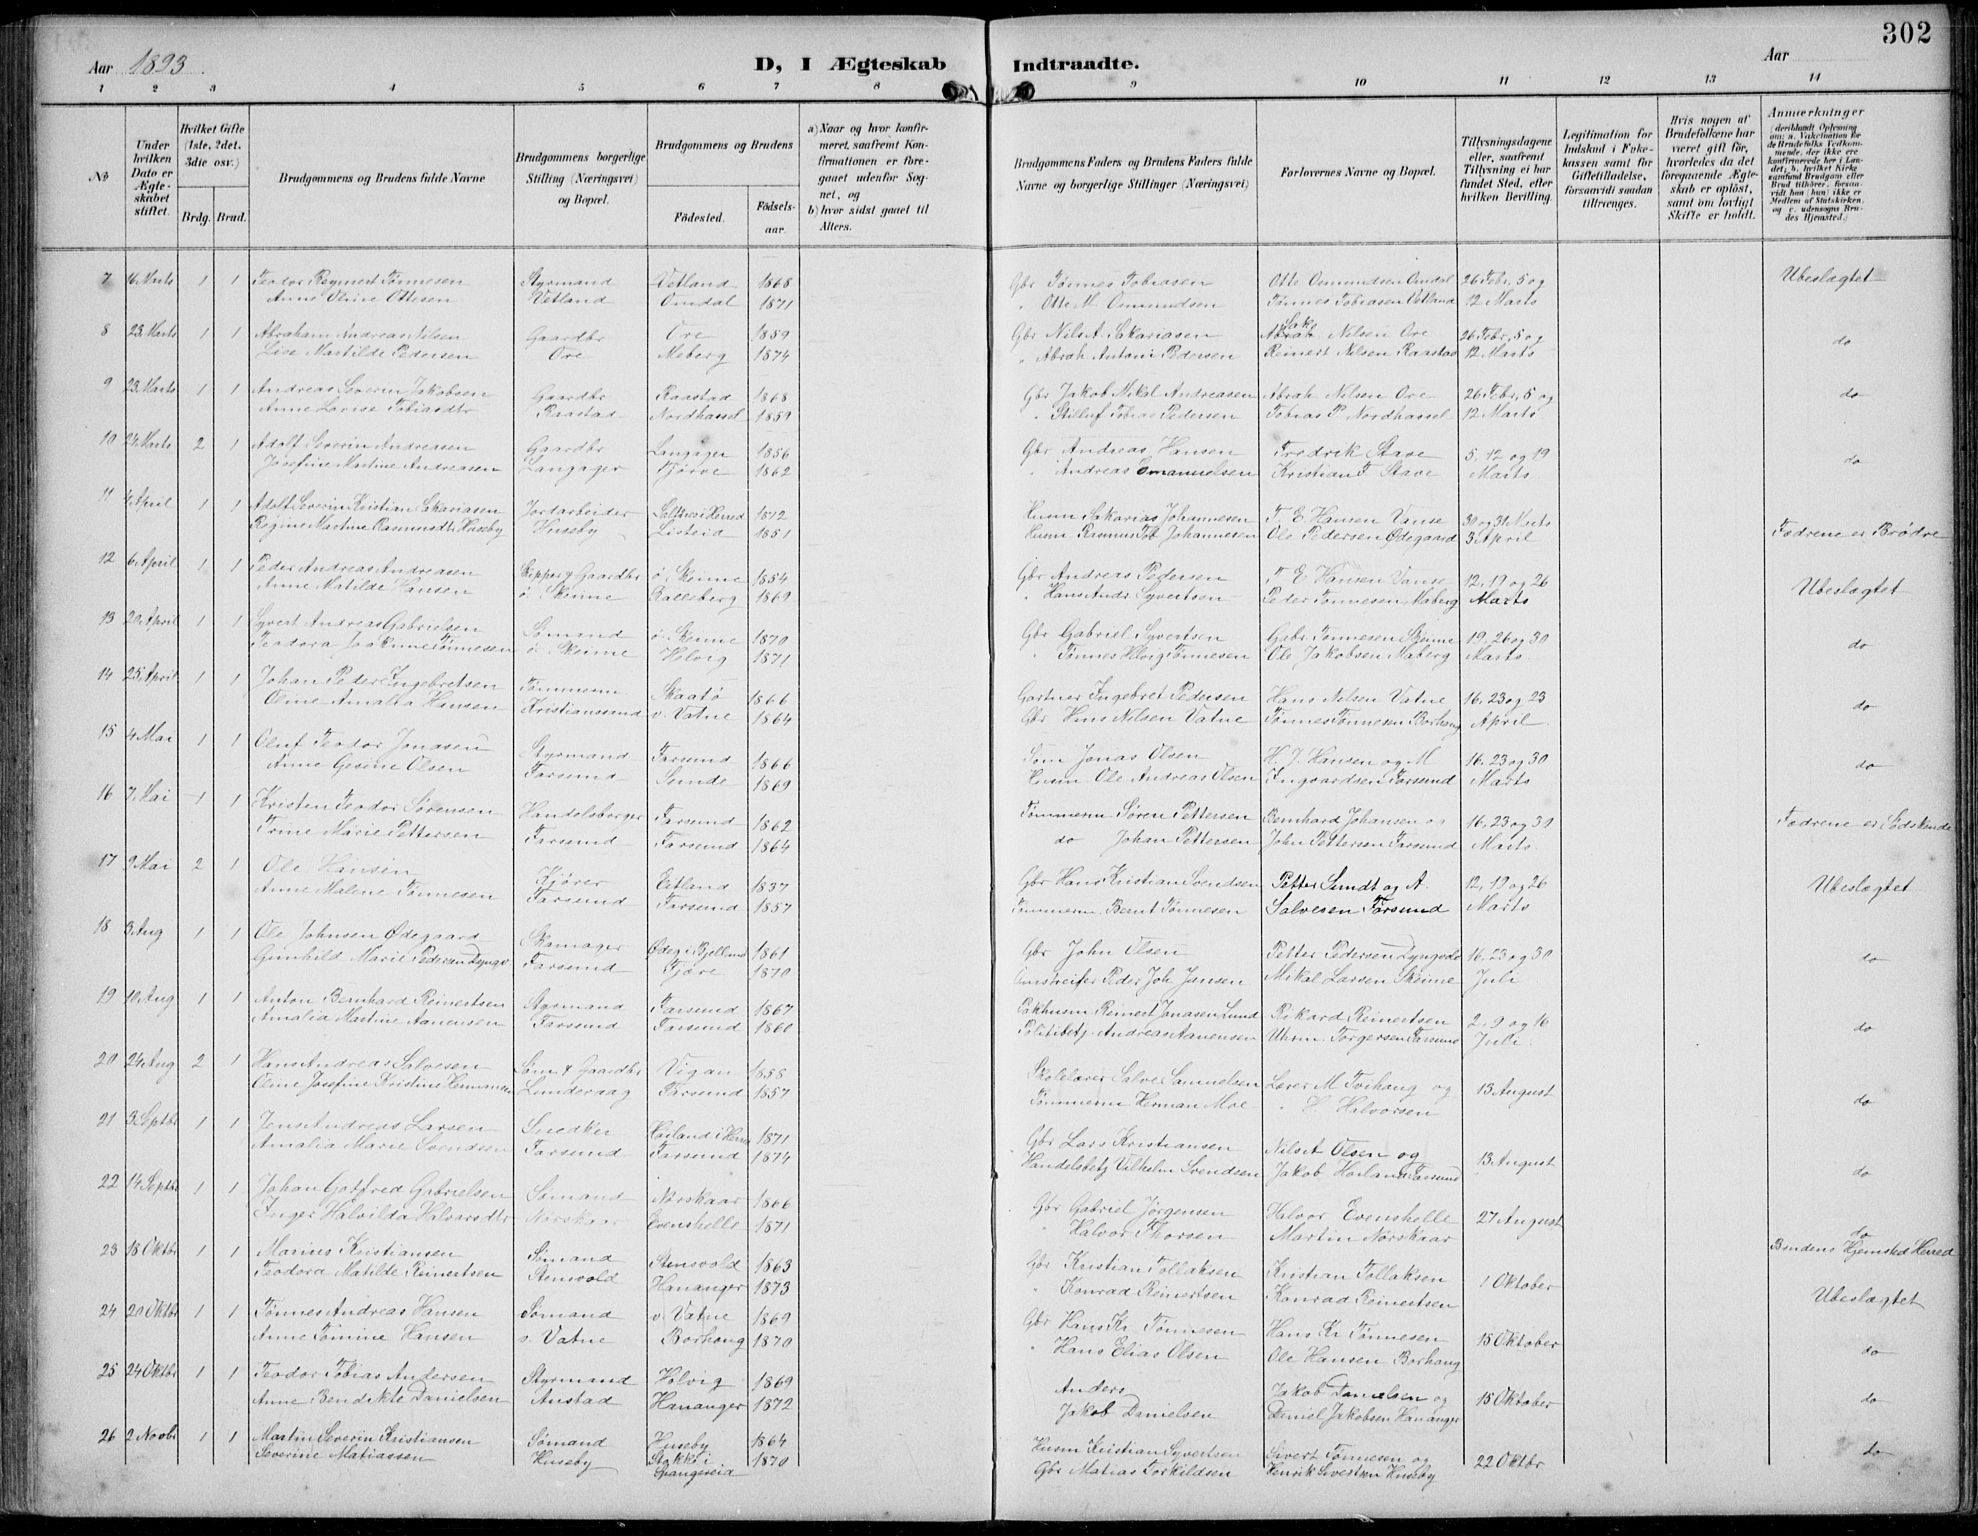 302
Aar 1893.
D, I Ægteskab Indtraadte.
Aar
1 2 3 4 5 6 7 8 9 10 11 12 13 14
№
Under hvilken Dato er Ægteskabet stiftet.
Hvilket Gifte (1ste, 2det, 3die osv.)
Brdg. Brud.
Brudgommens og Brudens fulde Navne
Brudgommens borgerlige Stilling (Næringsvei) og Bopæl.
Brudgommens og Brudens
Fødested.
Fødselsaar.
a) Naar og hvor konfirmeret, saafremt Konfirmationen er foregaaet udenfor Sognet, og
b) hvor sidst gaaet til Alters.
Brudgommens Faders og Brudens Faders fulde Navne og borgerlige Stillinger (Næringsvei)
Forlovernes Navne og Bopæl.
Tillysningsdagene eller, saafremt Tillysning ei har fundet Sted, efter hvilken Bevilling.
Legitimation for Indskud i Enkekassen samt for Giftetilladelse, forsaavidt saadan tiltrænges.
Hvis nogen af Brudefolkene har været gift før, hvorledes da det foregaaende Ægteskab er opløst, samt om lovligt Skifte er holdt.
Anmærkninger
7 16 Marts 1 1 Teodor Regnert Tønnesen Styrmand Vetland 1868 Gbr Tønnes Tobiasen Otte Omundsen Omdal 26 Febr. 5 og Ubeslægtet
Anne Oline Ottesen Vetland Omdal 1871 " Otte M. Omundsen Tønnes Tobiasen Vetland 12 Marts
8 23 Marts 1 1 Abraham Andreas Nilsen Gaardbr Ore 1859 Gbr Nils A. Sakariasen Nilsen Ore 26 Febr, 5 og do
Lise Martilde Pedersen Ore Meberg 1874 " Abrah Antoni Pedersen Reinert Nilsen Raastad 12 Marts
9 23 Marts 1 1 Andreas Severin Jakobsen Gaardbr Raastad 1868 Gbr Jakob Mikal Andreasen Abrah Nilsen Ore 26 Febr, 5 og do
Anne Lovise Tobiasdtr Raastad Nordhassel 1859 " Tobias Pedersen Tobias P. Nordhassel 12 Marts
10 24 Marts 2 1 Adolf Severin Andreasen Gaardbr Langager 1856 Gbr Andreas Hansen Fredrik Stave 5, 12 og 19 do
Josefine Martine Andreasen Langager Tjørve 1862 " Andreas Emanuelsen Kristian F Stave Marts
11 4 April 1 1 Adolf Severin Kristian Sakariasen Jordarbeider i Herred 1872 Husm Sakarias Johannesen T. E. Hansen Vanse 30 og 31 Marts Fædrene er Brødre
Regine Martine Rasmusdtr Huseby Huseby Listeid 1851 Husm Rasmus Tob Johannesen Ole Pedersen Ødegaard 3 April
12 6 April 1 1 Peder Andreas Andreasen Skipper & Gaardbr ø. Skeime 1854 Gbr Andreas Pedersen T. E Hansen Vanse 12, 19 og 26 Ubeslægtet
Anne Matilde Hansen ø. Skeime Balleberg 1869 " Hans Andr. Syvertsen Peder Tønnesen Maberg Marts
13 20 April 1 1 Syvert Andreas Gabrielsen Sømand ø. Skeime 1870 Gbr Gabriel Syvertsen Gabr Tønnesen Skeime 19, 26 og 30 do
Teodora Joakime Tønnesen ø. Skeime Hølvig 1871 " Tønnes Hlvig Tønnesen Ole Jakobsen Maberg Marts
14 25 April 1 1 Johan Peder Ingebretsen Tømmerm. Skaatø 1866 Gartner Ingebret Pedersen Hans Nilsen Vatne 16, 23 og 23 do
Oline Amalia Hansen Kristianssund v. Vatne 1864 Gbr Hans Nilsen Vatne Tønnes Tønnesen Borhaug April
15 4 Mai 1 1 Oluf Teodor Jonasen Styrmand Farsund 1866 Søm Jonas Olsen H. J. Hansen og M 16, 23 og 30 do
Anne Gesine Olsen Farsund Sunde 1869 Husm Ole Andreas Olsen Ingvardsen Farsund Marts
16 7 Mai 1 1 Kristen Teodor Sørensen Handelsborger Farsund 1862 Tømmerm Søren Pettersen Bernhard Johansen og 16, 23 og 30 Fædrene er Sødskende
Trine Marie Pettersen Farsund Farsund 1864 do Johan Pettersen John Pettersen Farsund Marts
17 9 Mai 2 1 Ole Hansen Kjører Eitland 1837 Gbr Hans Kristian Svendsen Petter Sundt og A. 12, 19 og 26 Ubeslægtet
Anne Malene Tønnesen Farsund Farsund 1857 Tømmerm. Bernt Tønnesen Salvesen Farsund Marts
18 3 Aug 1 1 Ole Johnsen Ødegaard Skomager Ødeg i Bjelland 1861 Gbr John Olsen Petter Pedersen Lyngvde 16, 23 og 30 do
Gunhild Marie Pedersen Farsund Fjære 1870 Peder Joh Jansen Mikal Larsen Skeime Juli
19 10 Aug 1 1 Anton Bernhard Reinertsen Styrmand Farsund 1867 Pakhusm Reinert Jonasen Lund Rikard Reinertsen 2, 9 og 16 do
Amalia Martine Aanensen Farsund Farsund 1860 Politibetj. Andreas Aanensen Uhrm. Torgersen Farsund Juli
20 24 Aug 2 1 Hans Andreas Salvesen Søm & Gaardbr Vigan 1858 Skolelærer Salve Samuelsen Lærer M Tvihaug og 13 August do
Oline Josefine Kristine Hermansen Lunderaag Farsund 1857 Tømmerm Herman Moe " H Halvorsen
21 3 Septbr 1 1 Jens Andreas Larsen Snedker Høiland i Herred 1871 Gbr Lars Kristiansen Nilset Olsen og 13 August do
Amalia Marie Svendsen Farsund Farsund 1874 Handelsbetj Vilhelm Svendsen Jakob Høiland Farsund
22 14 Septbr 1 1 Johan Gotfred Gabrielsen Sømand Nørskaar 1866 Gbr Gabriel Jørgensen Halvor Evenshelle 27 August do
Inger Halvilda Halvorsdtr Nørskaar Evenshelle 1871 " Halvor Thorsen Martin Nørskaar
23 18 Oktbr 1 1 Marius Kristiansen Sømand Stensvold 1863 Gbr Kristian Tollaksen Kristian Tollaksen 1 Oktober Brudens Hjemsted Herred
Teodora Matilde Reinertsen Stensvold Hananger 1873 " Konrad Reinertsen Konrad Reinertsen Ubeslægtet
24 20 Oktbr 1 1 Tønnes Andreas Hansen Sømand v. Vatne 1869 Gbr Hans Kr. Tønnesen Hans Kr Tønnesen 15 Oktober do
Anne Tomine Hansen v. Vatne Borhaug 1870 " Hans Elias Olsen Ole Hansen Borhaug
25 24 Oktbr 1 1 Teodor Tobias Andersen Styrmand Hølvig 1869 Anders Jakob Danielsen og 15 Oktober do
Anne Bendikte Danielsen Austad Hananger 1872 Jakob Danielsen Daniel Jakobsen Hananger
26 2 Novbr 1 1 Martin Severin Kristiansen Sømand Huseby 1864 Husm Kristian Syvertsen Sivert Tønnesen og 22 Oktbr do
Severine Matiassen Huseby Stokke i Spangereid 1870 Gbr Matias Torkildsen Henrik Sivertsen Huseby